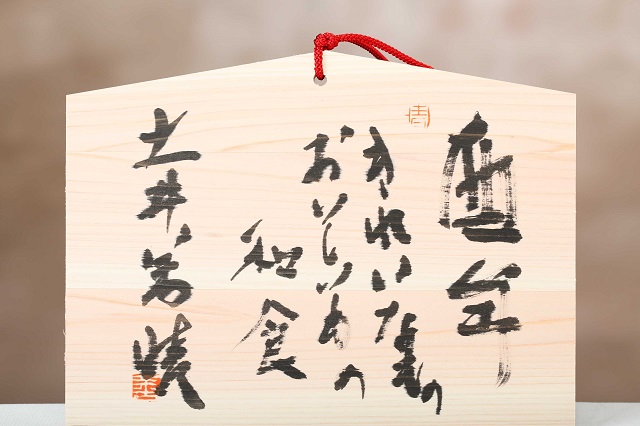 きれいなもの
おいしいもの
和食
土井善晴